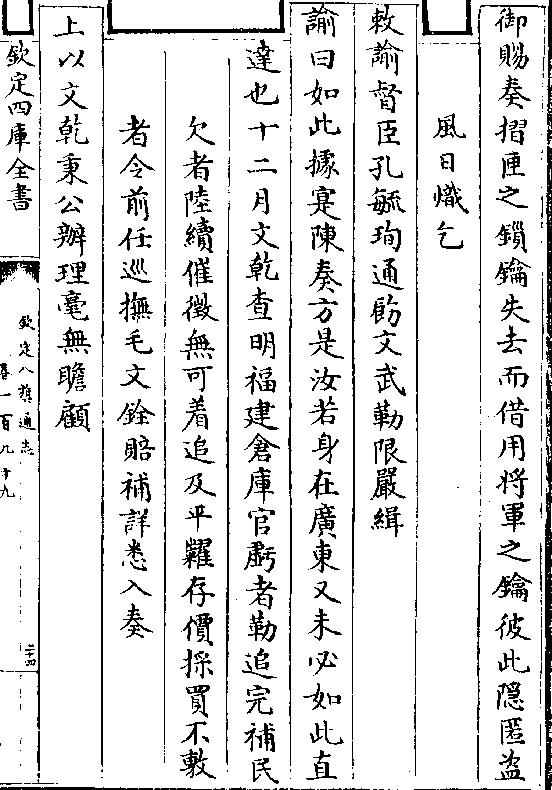 御賜奏摺匣之鎖鑰失去而借用將軍之鑰彼此隱匿盜
風日熾乞
敕諭督臣孔毓珣通飭文武勒限嚴緝
諭曰如此據寔陳奏方是汝若身在廣東又未必如此直
達也十二月文乾查明福建倉庫官虧者勒追完補民
欠者陸續催徵無可着追及平糶存價採買不敷
者令前任巡撫毛文銓賠補詳悉入奏
上以文乾秉公辦理毫無瞻顧
欽定四庫全書
欽定八旗通志
卷一百九十九
二十四